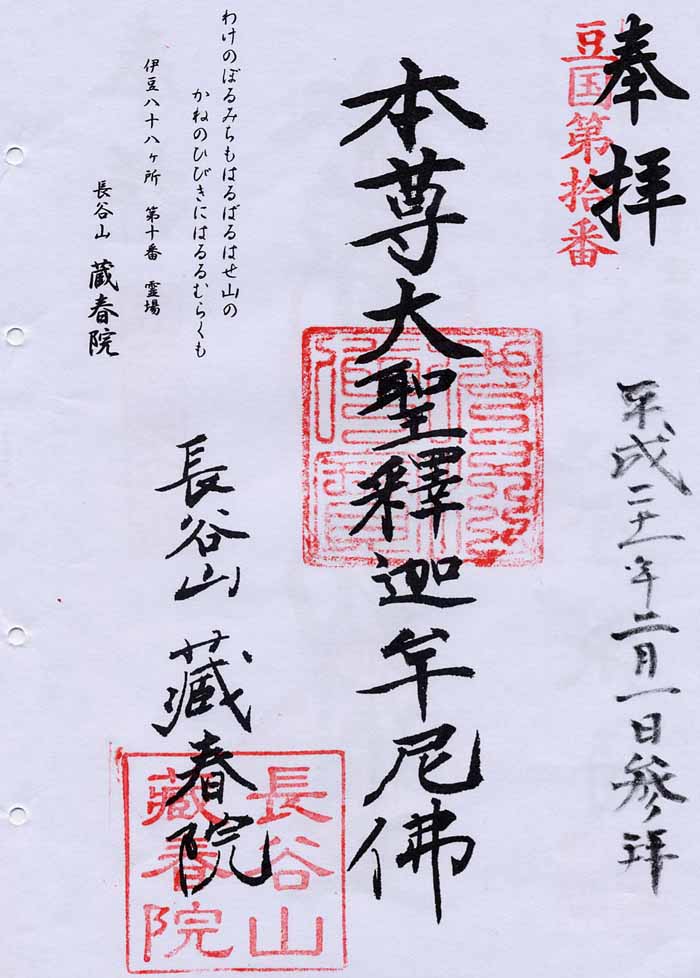 奉拝
豆国第拾番
平成二十一年二月一日参拝
本尊大聖釋迦牟尼佛
長谷山 藏春院
長谷山
藏春院
わけのぼるみちもはるばるはせ山の
かねのひびきにはるるむらくも
伊豆八十八ヶ所 第十番 霊場
長谷山 蔵春院